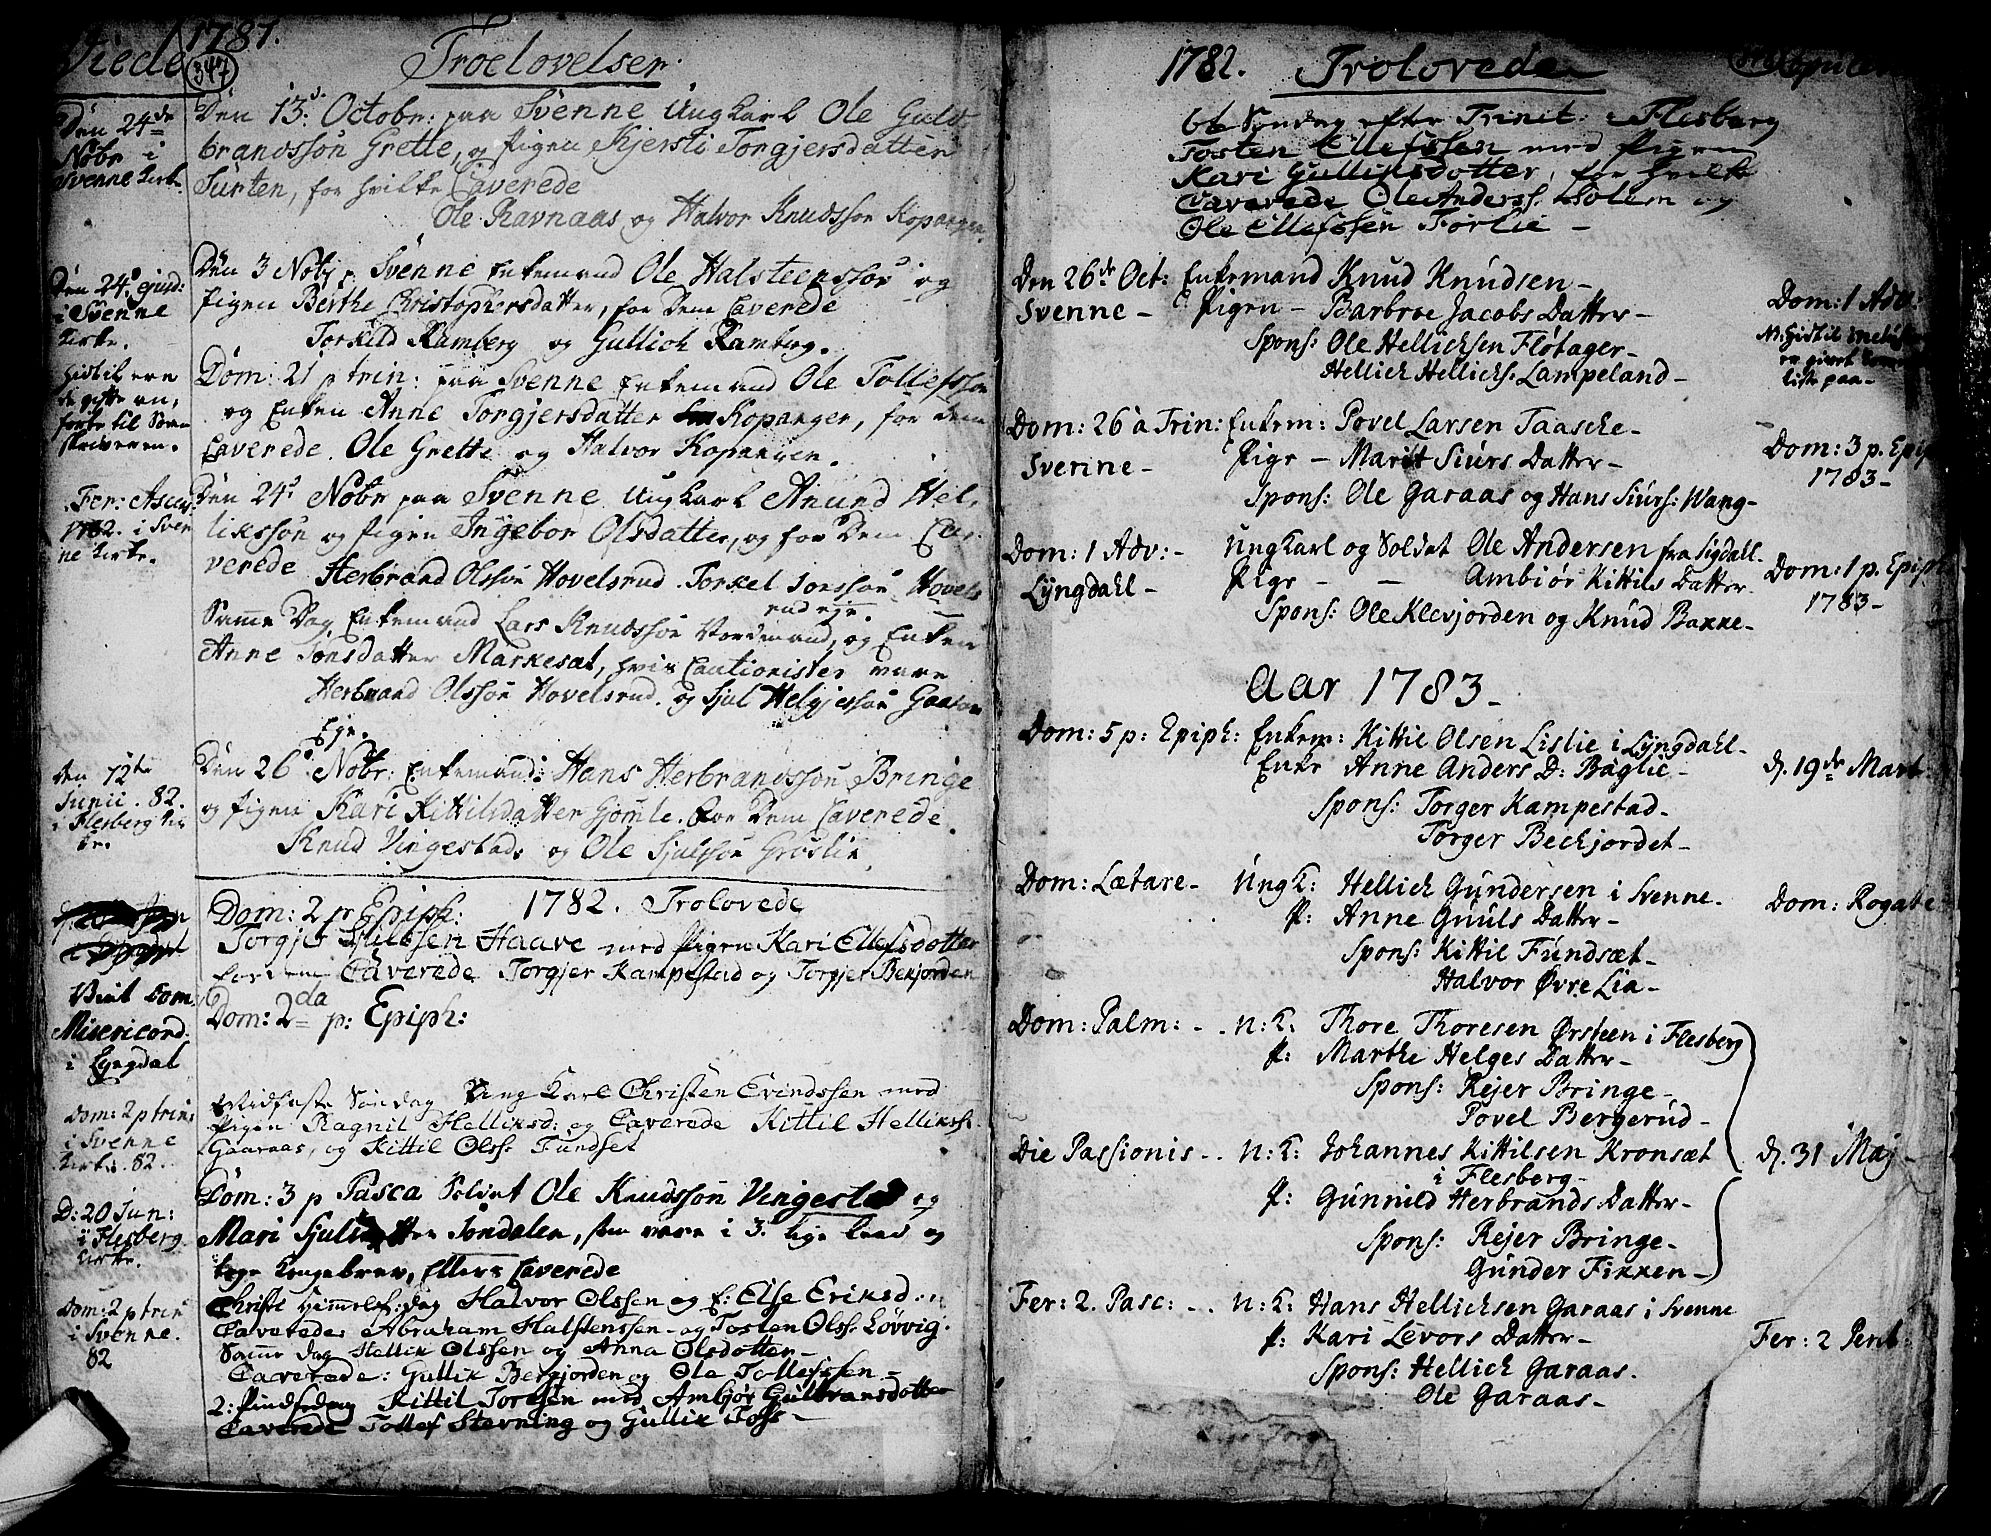 Viede 1781.
347 Troelovelser.
Den 24de
Nobr i
Svenne Kirke.
Den 13d. Octobr: paa Svenne Ungkarl Ole Guld-
brandssøn Grette, og Pigen Kjersti Torgjersdatter
Surten, for hvilke Caverede
Ole Ravnaas og Halvor Knudssøn Kopangen.
Den 24d ejusd:
i Svenne
Kirke.
Den 3 Nobr p. Svenne Enkemand Ole Halsteenssøn og
Pigen Berthe Christophersdatter, for dem Caverede
Torkild Ramberg og Gullich Ramberg.
Dom: 21 p trin: paa Svenne Enkemand Ole Tollefssøn
og Enken Anne Torgjersdatter Kopanger, for dem
Caverede Ole Grette og Halvor Kopangen.
Fer: Ascens
1782. i Sven
ne Kirke.
Den 24d Nobr paa Svenne Ungkarl Anund Hel-
likssøn og Pigen Ingebor Olsdatter, og for dem Ca-
verede Herbrand Olssøn Hovelsrud Torkel Jonssøn Hovels
rud eje.
Samme Dag Enkemand Lars Knudssøn Vordmand, og Enken
Anne Jonsdatter Markesat, hvis Cautionister vare
Herbrand Olssøn Hovelsrud og Sjul Helgjessøn Gaaraas
Eje.
Den 12te
Junii. 82.
i Flesberg Kir
ke.
Den 26d Nobr: Enkemand: Hans Herbrandssøn Bringe
og Pigen Kari Kittilsdatter Gjømle. For dem Caverede
Knud Vingestad og Ole Sjulssøn Grøslie.
1782. Trolovede
Dom: 2 p Epiph:
Torgjer Haave med Pigen Kari Ellefsdotter
for dem Caverede Torgjer Kampestad og Torgjer Bekjorden
Viet Dom
Misericord.
i Lyngdal
Dom: 2da p: Epiph:
Dom: 2 p trin:
i Svenne
Kirke. 82.
Midfaste Søndag Ung Karl Christen Evindssen med
Pigen Ragnil Helliksd: og Caverede Kittil Hellikss.
Gaaraas, og Kittil Olss. Fundset
D: 20 Jun:
i Flesberg
Kirke.
Dom: 3 p Pasca Soldat Ole Knudssøn Vingestad og
Mari Sjulsdatter Søndalen, som vare i 3. lige leed og
Kongebrev, Ellers Caverede
Dom: 2 p trin
i Svenne.
82
Christi Himmelf: dag Halvor Olssen og P: Else Eriksd.
Caverede Abraham Halstenssen og Tosten Olss. Løvvig.
Samme dag Hellik Olssen og Anna Olsdotter
Caverede: Gullik Bergjorden og Ole Tollefssen
2: Pindsedag Kittil Torssen med Ambjør Gulbransdotter
Caverede Tollef Stevning og Gullik Toss
1782. Trolovede Copulerede
6te Søndag efter Trinit: i Flesberg
Tosten Ellefssen med Pigen
Kari Gulliksdotter, for hvilke
Caverede Ole Anderss. Holem og
Ole Ellefssen Torlie
Den 26de Oct: Enkemand Knud Knudsen
Svenne Pigen Barbroe Jacobs Datter
Spons: Ole Hellichsen Fløtager
Hellich Hellichs. Lampeland
Dom: 1 Adv:
Dom: 26 à Trin: Enkem: Povel Larsen Taasche
Svenne Pige Marit Siurs Datter
Spons: Ole Garaas og Hans Siurs: Wang
Dom: 3 p. Epiph
1783
Dom: 1 Adv: Ungkarl og Soldat Ole Andersen fra Sigdahl
Lyngdahl Pige Ambiør Kittils Datter
Spons: Ole Klevjorden og Knud Bakke
Dom: 1 p. Epiph
1783
Aar 1783
Dom: 5 p: Epiph: Enkem: Kittil Olsen Lislie i Lyngdahl
Enke Anne Anders D: Baglie
Spons: Torger Kampestad
Torger Bechjordet
d. 19de Mart
Dom: Lætare Ungk: Hellich Gundersen i Svenne
P: Anne Gnuls Datter
Spons: Kittil Fundsæt
Halvor Øvre Lia
Dom: Rogate
Dom: Palm: U: K: Thore Thoresen Ørsteen i Flesberg
P: Marthe Helges Datter
Spons: Rejer Bringe
Povel Bergerud
Die Passionis U: K: Johannes Kittilsen Kronsæt
i Flesberg
P: Gunnild Herbrands Datter
Spons: Rejer Bringe
Gunder Fikken
d. 31 Maj
Fer: 2. Pasc: U: K: Hans Hellichsen Garaas i Svenne
P: Kari Levors Datter
Spons: Hellich Garaas.
Ole Garaas
Fer: 2 Pent: